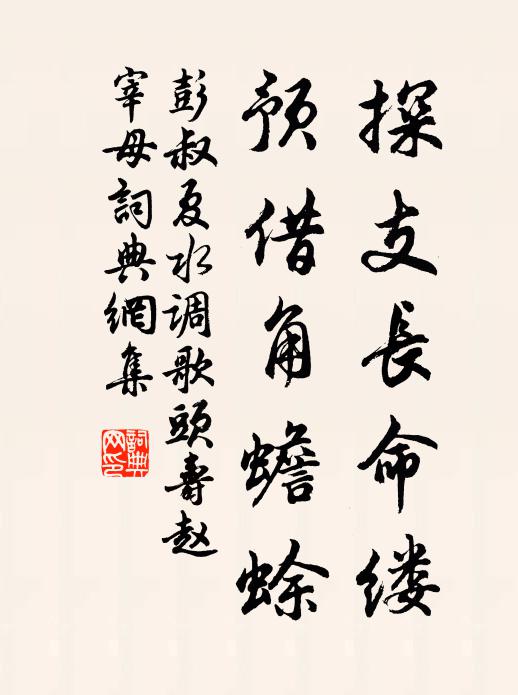 探支長命缕
预借角蟾蜍
彭叔夏水调歌頭壽赵
宰母詞典網集
詞典网印